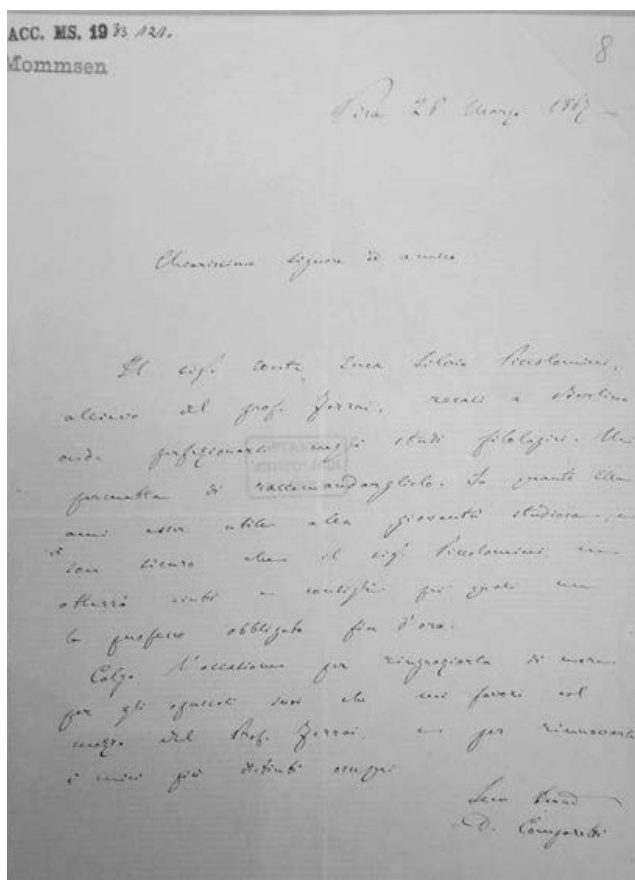 ACC. MS. 1933.121.
Mommsen
8
Pisa 28 Marzo 1867
Chiarissimo Signore ed amico
Il sigr. Conte Enea Silvio Piccolomini,
allievo del prof. Ferrai, recasi a Berlino
onde perfezionarsi negli studi filologici. Mi
permetta di raccomandarglielo. So quanto Ella
ami esser utile alla gioventù studiosa, e
son sicuro che il sigr Piccolomini ne
otterrà aiuti e consigli pei quali me
le professo obbligato fin d'ora.
Colgo l'occasione per ringraziarla di
per gli opuscoli suoi che mi favorì col
mezzo del Prof. Ferrai, e per rinnovarle
i miei più distinti ossequi
Suo
D. Comparetti